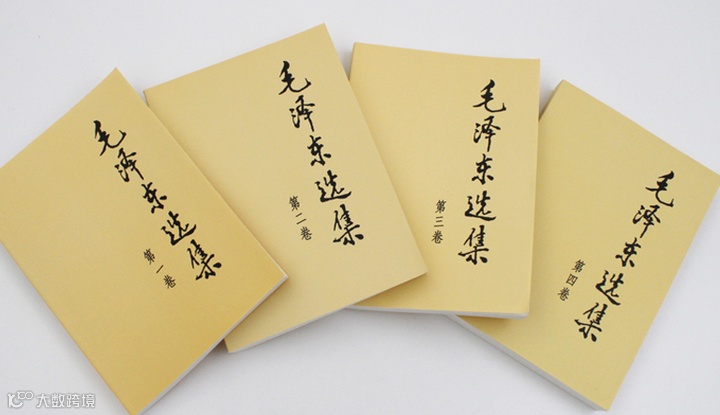 毛泽东选集
第一卷
毛泽东选集
第二卷
毛泽东选集
第三卷
毛泽东选集
第四卷
大数跨境